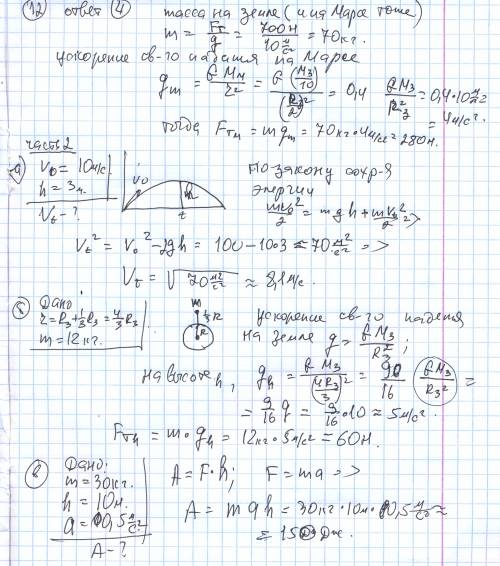 12 ответ 4 масса на Земле (и на Марсе тоже)
m = Fт/g = 700Н/10 м/с² = 70 кг.
ускорение св-го падения на Марсе
gм = GMм/r² = G(Mз/10)/(Rз/2)² = 0,4 GMз/Rз² = 0,4·10 м/с² = 4 м/с².
тогда Fтм = mgм = 70кг·4м/с² = 280Н.
часть 2
а) V0 = 10м/с
h = 3м.
Vt - ?
V0 h t
По закону сохр-я
энергии
mV0²/2 = mgh + mVt²/2 =>
Vt² = V0² - 2gh = 100 - 10·3 = 70 м²/с² =>
Vt = √70 м²/с² ≈ 8,1 м/с.
б Дано:
r = Rз + 1/3Rз = 4/3 Rз
m = 12 кг.
m 1/3R R
ускорение св-го падения
на Земле g = GMз/Rз²;
на высоте h, gh = GMз/(4Rз/3)² = 9/16 (GMз/Rз²) =
= 9/16 g = 9/16·10 ≈ 5м/с².
Fтh = m·gh = 12кг·5м/с² = 60Н.
в Дано:
m = 30кг.
h = 10м.
a = 0,5 м/с²
A - ?
A = F·h; F = ma =>
A = mah = 30кг·10м·0,5 м/с² =
= 150 Дж.